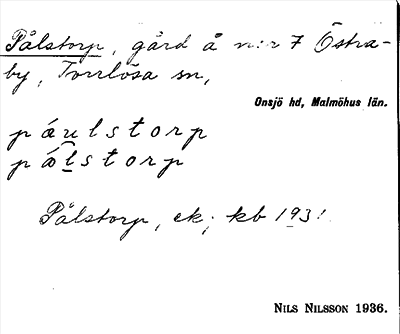 Pålstorp, gård å n:r 7 Östra-
by, Torrlösa sn,
Onsjö hd, Malmöhus län.
páulstorp
pålstorp
Pålstorp, ek; kb 1931.
NILS NILSSON 1936.